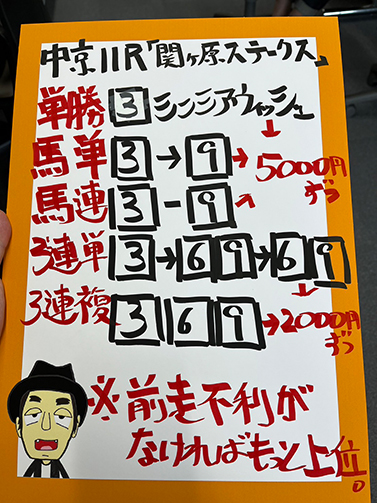 中京11R「関ヶ原ステークス」
単勝 3 シンシアウィッシュ
馬単 3→9→5000円ずつ
馬連 3-9
3連単 3→69→69
3連複 3 6 9→2000円ずつ
※前走不利が
なければもっと上位。